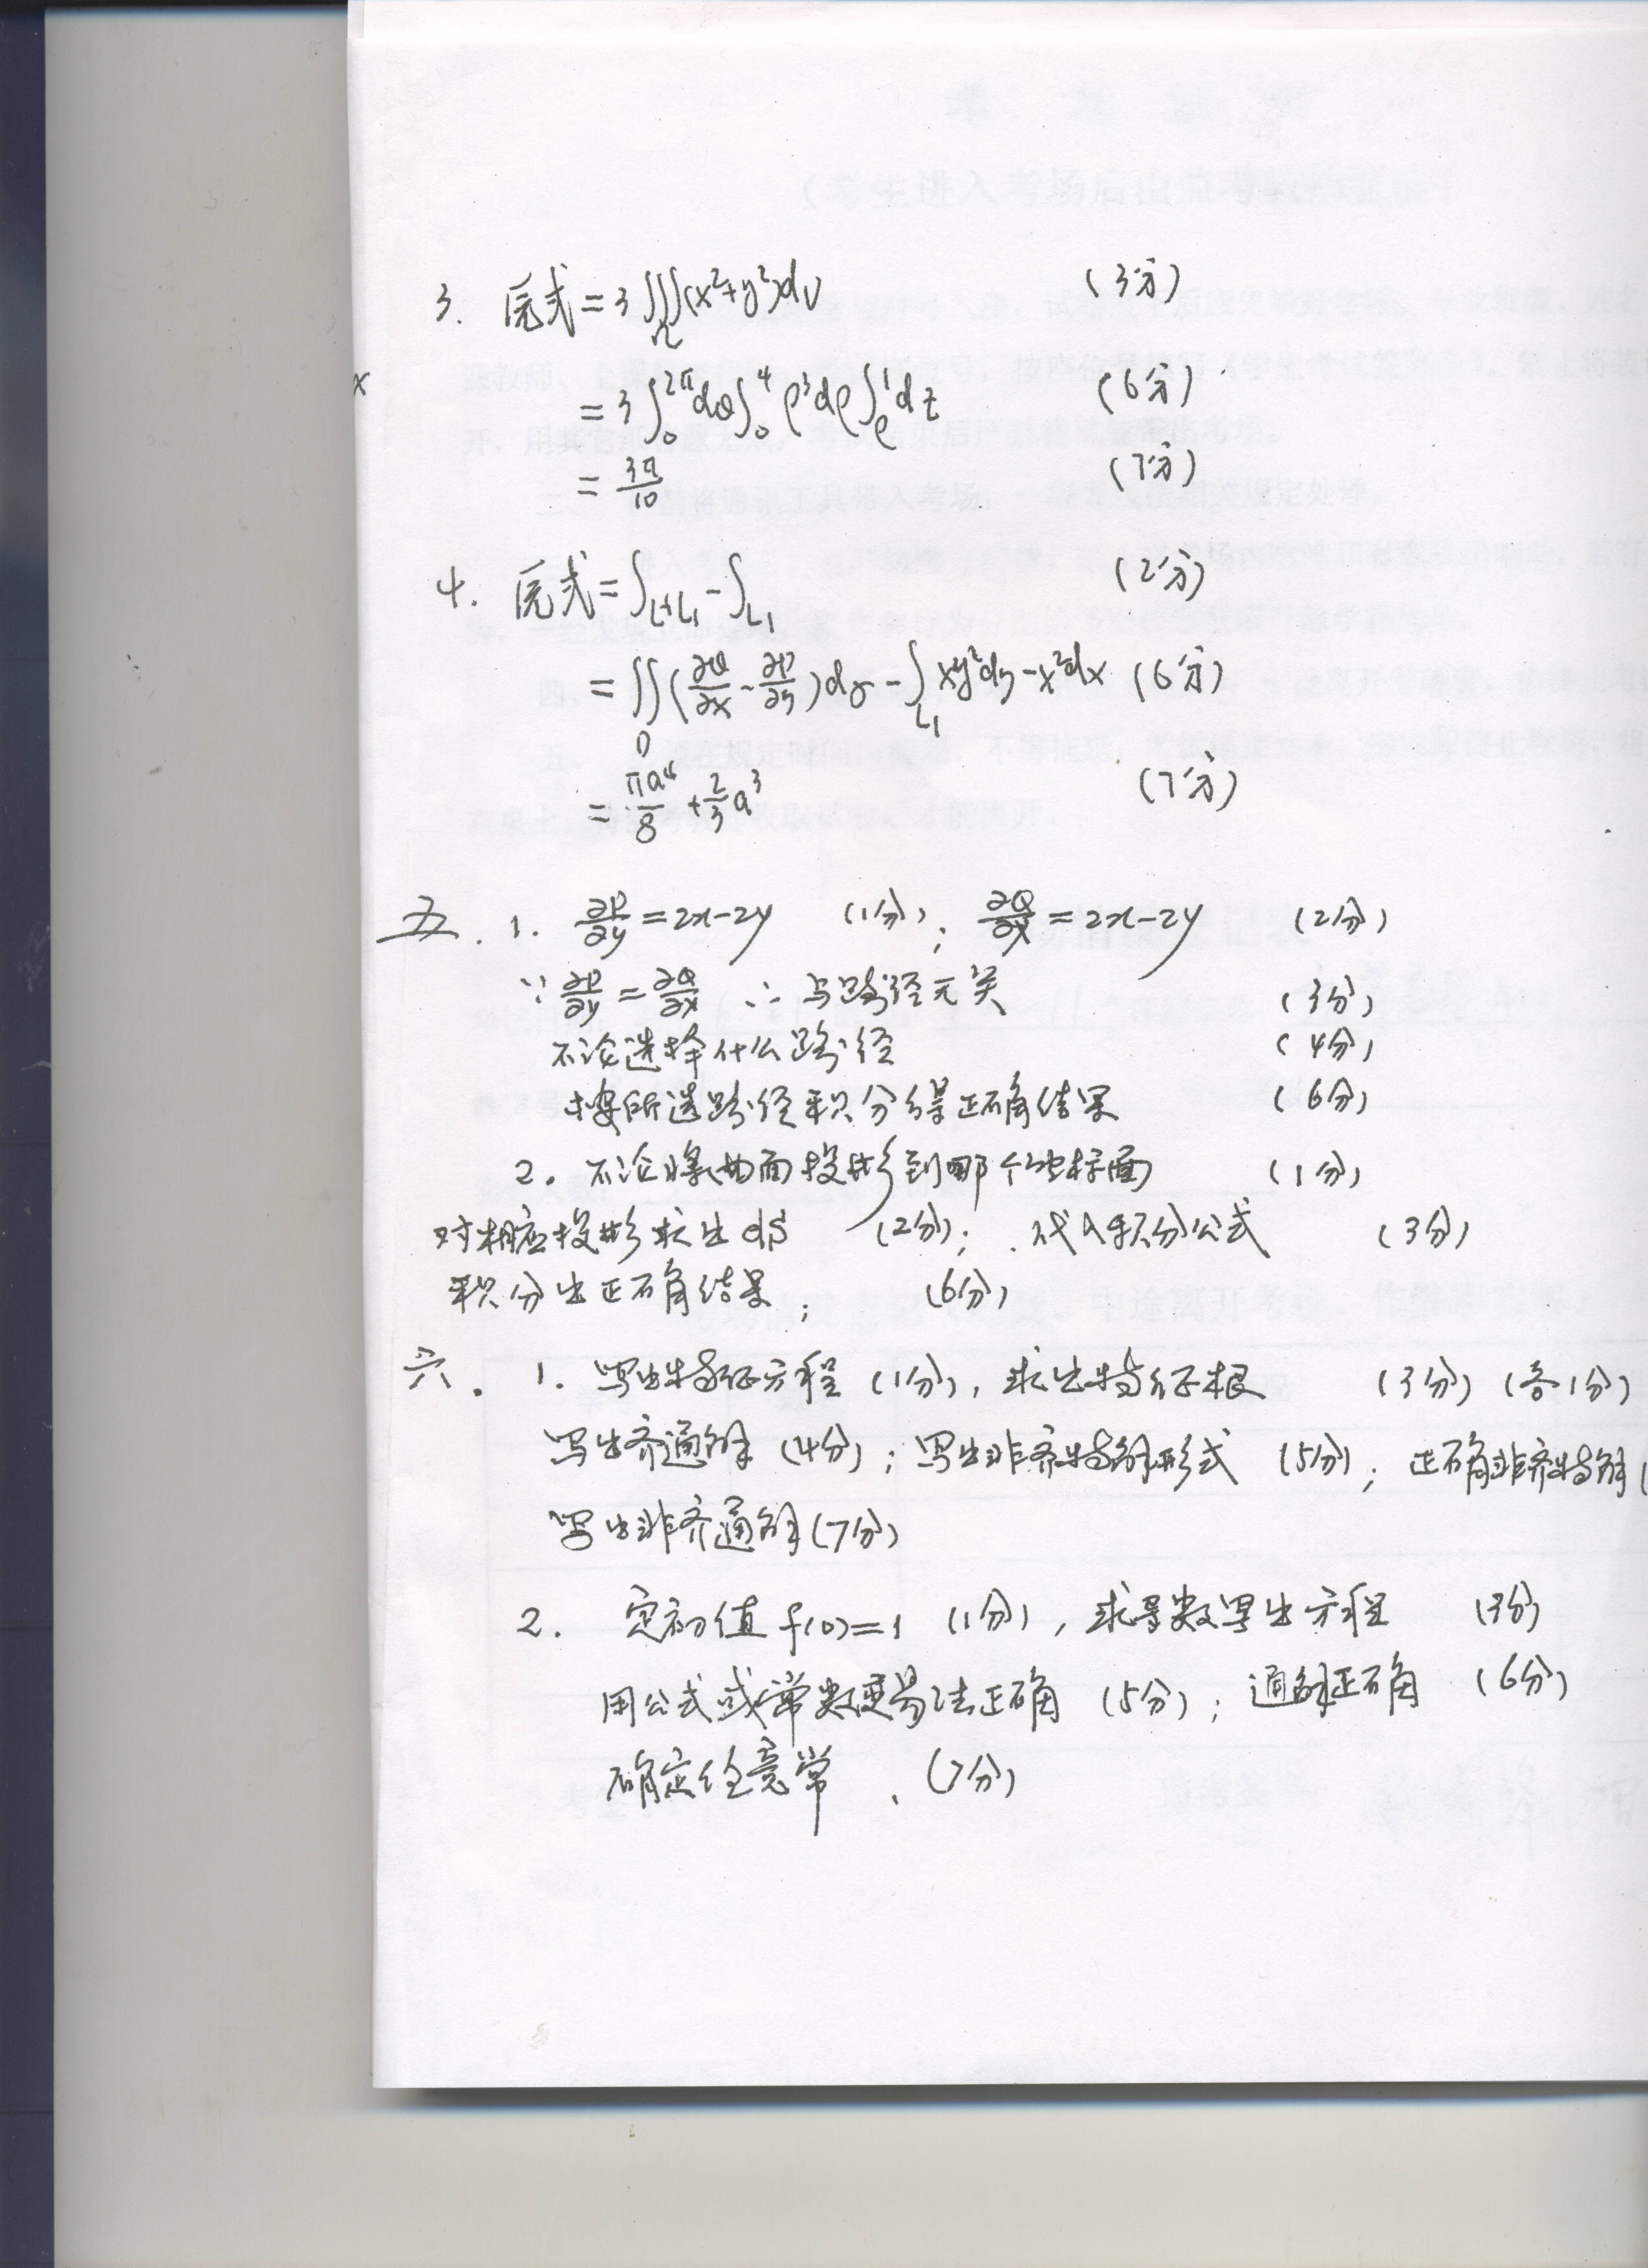 3. 原式=3∭_Ω(x²+y²)dv (3分)
x
=3∫₀^{2π}dθ∫₀^4 ρ³dρ∫_ρ^1 dz (6分)
=3π/10 (7分)
4. 原式=∫_{L+L₁}-∫_{L₁} (2分)
=∬_D(∂Q/∂x-∂P/∂y)dσ-∫_{L₁}xy²dy-x²dx (6分)
=πa⁴/8+2/3a³ (7分)
五.1. ∂P/∂y=2x-2y (1分); ∂Q/∂x=2x-2y (2分)
∵∂P/∂y=∂Q/∂x ∴与路径无关 (3分)
不论选择什么路径 (4分)
按所选路径积分得正确结果 (6分)
2. 不论将曲面投影到哪个坐标面 (1分)
对相应投影求出dS (2分); 代入积分公式 (3分)
积分出正确结果; (6分)
六. 1. 写出特征方程(1分), 求出特征根 (3分)(各1分)
写出齐通解(4分); 写出非齐特解形式 (5分); 正确非齐特解(
写出非齐通解(7分)
2. 定初值f(0)=1 (1分), 求导数写出方程 (3分)
用公式或常数变易法正确 (5分); 通解正确 (6分)
确定任意常、(7分)